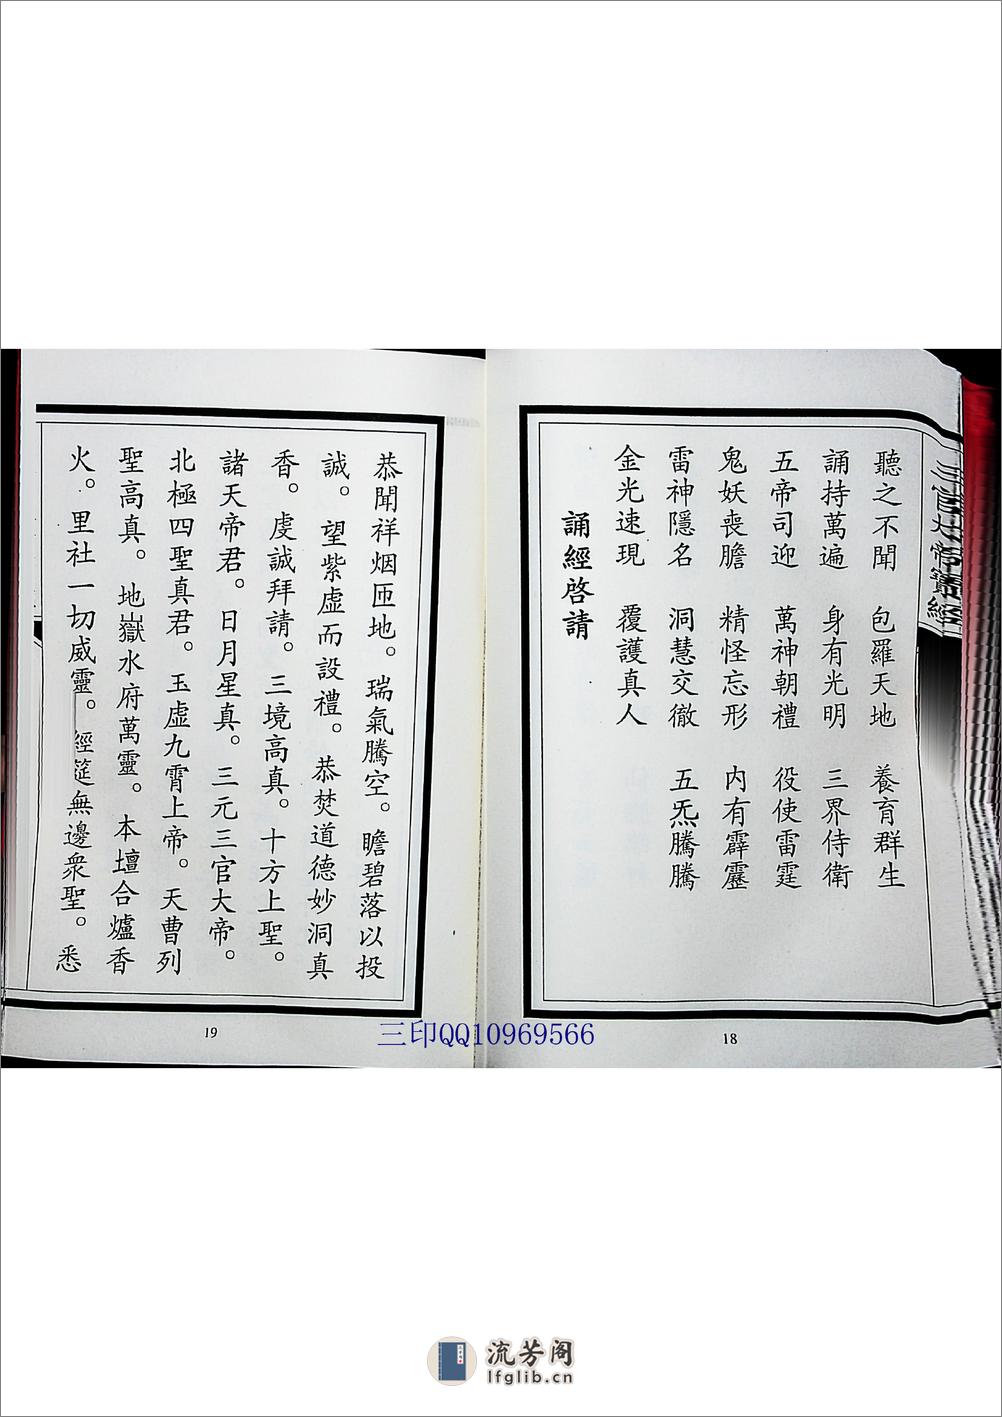 三官大帝寶經
聽之不聞　包羅天地　養育群生
誦持萬遍　身有光明　三界侍衛
五帝司迎　萬神朝禮　役使雷霆
鬼妖喪膽　精怪忘形　內有霹靂
雷神隱名　洞慧交徹　五炁騰騰
金光速現　覆護真人
誦經啓請
18
恭聞祥烟匝地。瑞氣騰空。瞻碧落以投
誠。望紫虛而設禮。恭焚道德妙洞真
香。虔誠拜請。三境高真。十方上聖。
諸天帝君。日月星真。三元三官大帝。
北極四聖真君。玉虛九霄上帝。天曹列
聖高真。地嶽水府萬靈。本壇合爐香
火。里社一切威靈。經筵無邊衆聖。悉
19
三印QQ10969566
流芳阁
lfglib.cn